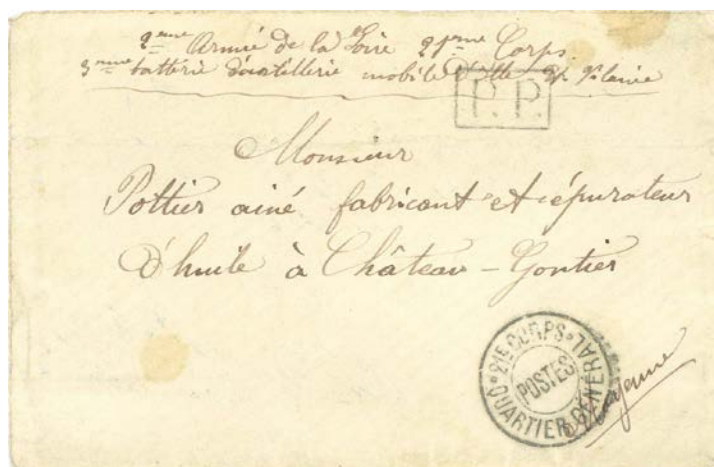 2eme Armée de la Loire 21eme Corps
3eme batterie d'artillerie mobile d'Ille et Vilaine
P.P.
Monsieur
Pottier ainé fabricant et épurateur
d'huile à Château-Gontier
21E CORPS QUARTIER GÉNÉRAL
POSTES
Mayenne